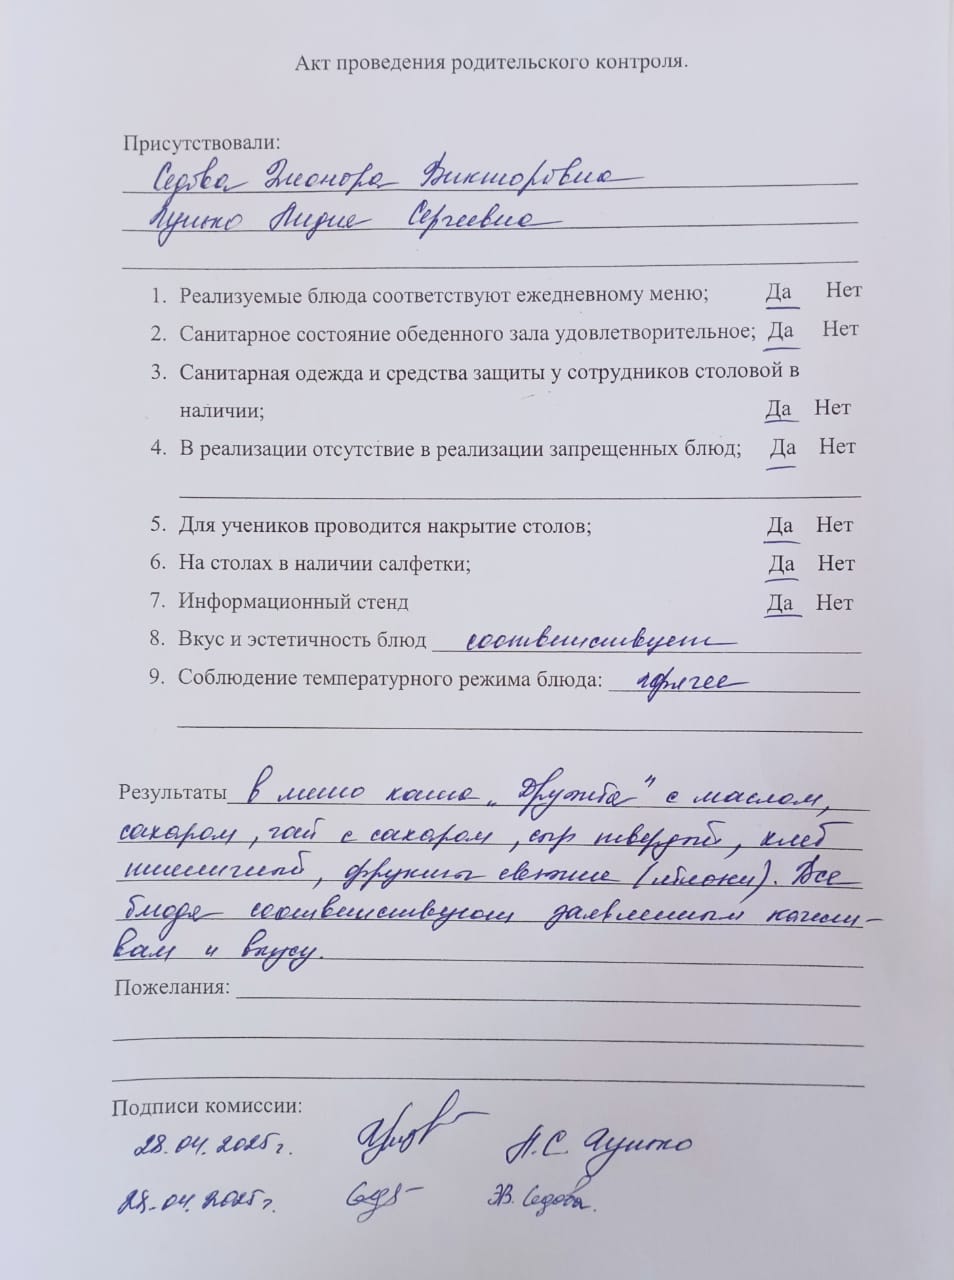 Акт проведения родительского контроля.
Присутствовали:
Седова Элеонора Викторовна
Лидия Сергеевна
1. Реализуемые блюда соответствуют ежедневному меню; Да Нет
2. Санитарное состояние обеденного зала удовлетворительное; Да Нет
3. Санитарная одежда и средства защиты у сотрудников столовой в
наличии; Да Нет
4. В реализации отсутствие в реализации запрещенных блюд; Да Нет
5. Для учеников проводится накрытие столов; Да Нет
6. На столах в наличии салфетки; Да Нет
7. Информационный стенд Да Нет
8. Вкус и эстетичность блюд соответствует
9. Соблюдение температурного режима блюда: горячее
Результаты в меню каша „Дружба" с маслом,
сахаром, чай с сахаром, сыр твердый, хлеб
пшеничный, фрукты свежие (яблоки). Все
блюда соответствуют заявленным качест-
вам и вкусу.
Пожелания:
Подписи комиссии:
28.04.2025г. Л.С.
28.04.2025г. Э.В. Седова.